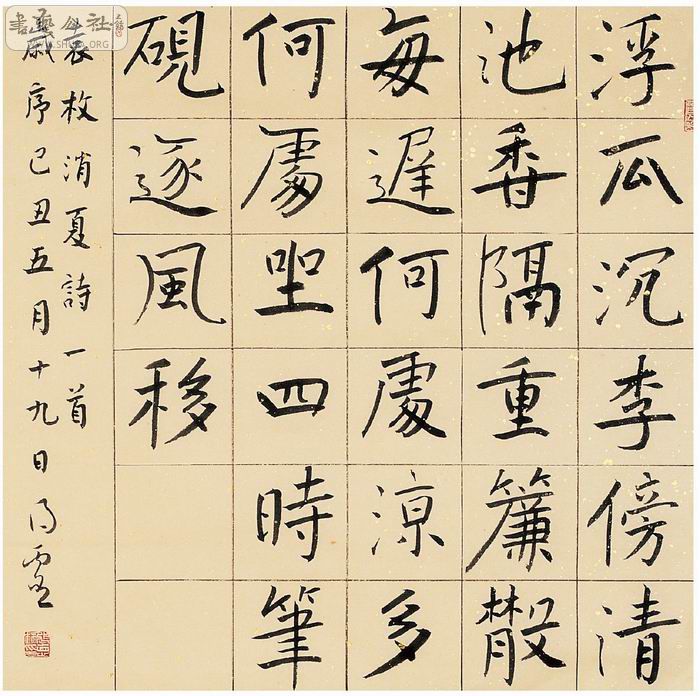 浮瓜沉李傍清
池香隔重簾散
每遲何處涼多
何處坐四時筆
硯逐風移
袁枚消夏詩一首
歲序己丑五月十九日
書藝公社
WWW.SHUFA.ORG